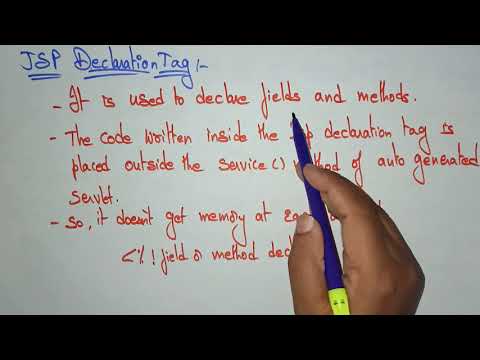 JSP Declaration Tag :-
- It is used to declare fields and methods.
- The code written inside the jsp declaration tag is
placed outside the service() method of auto generated
Servlet.
- So, it doesn't get memory at
<%! field or method decl